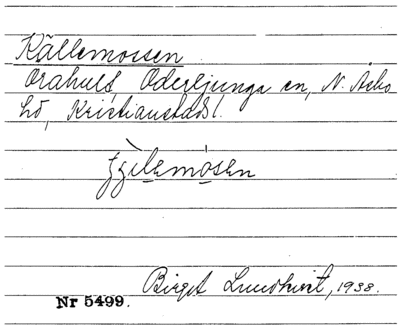 Källemossen
Orahult, Oderljunga sn, N. Åsbo
hd, Kristianstads l.
Birget Lundkvist, 1938.
Nr 5499.